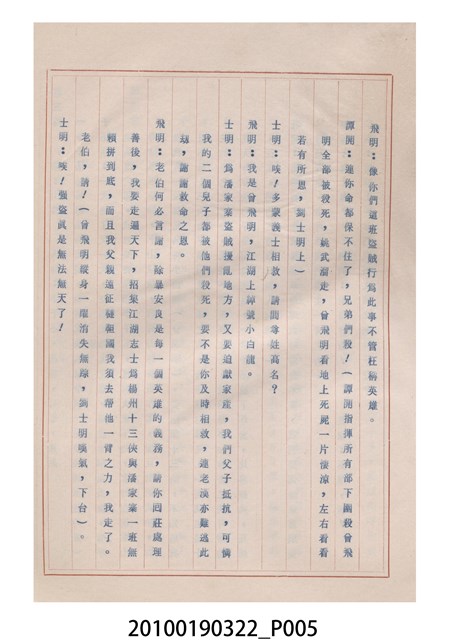 飛明：像你們這班盜賊行為此事不管枉稱英雄。
譚開：連你命都保不住了，兄弟們殺！（譚開指揮所有部下圍殺曾飛
明全部被殺死，姚武溜走，曾飛明看地上死屍一片淒涼，左右看看
若有所思，劉士明上）
士明：唉！多蒙義士相救，請問尊姓高名？
飛明：我是曾飛明，江湖上綽號小白龍。
士明：為潘家寨盜賊擾亂地方，又要追獻家產，我們父子抵抗，可憐
我的二個兒子都被他們殺死，要不是你及時相救，連老漢亦難逃此
劫，謝謝救命之恩。
飛明：老伯何必言謝，除暴安良是每一個英雄的義務，請你回莊處理
善後，我要走遍天下，招集江湖志士為揚州十三俠與潘家寨一班無
賴拼到底，而且我父親遠征 我須去幫他一臂之力，我走了。
老伯，請！（曾飛明縱身一躍消失無踪，劉士明嘆氣，下台）。
士明：唉！強盜武是無法無天了！
20100190322_P005